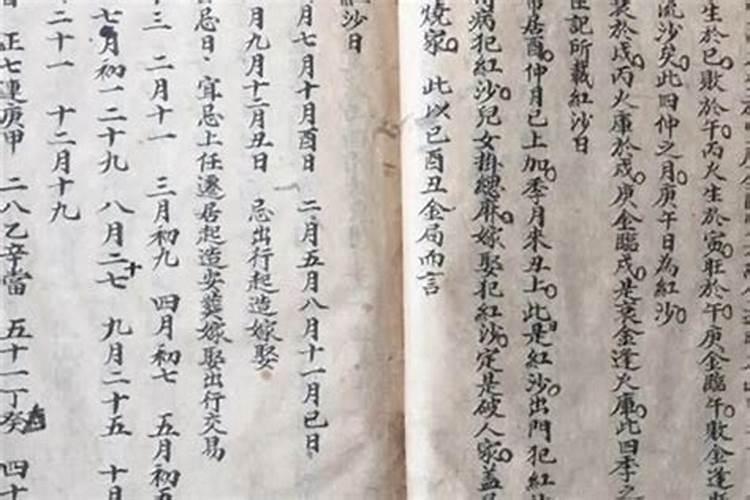 生於巳敗於午丙火生於寅旺於午庚金臨午敗金逢
流沙矣此四仲之月庚午日為紅沙
於戌丙火庫於戌庚金臨戌是衰金逢火庫此四季之
記所載紅沙日
居酉仲月已上加季月來丑上此是紅沙出門犯紅
病犯紅沙兒女掛總麻嫁娶犯紅沙定是破人家蓋
燒家 此以巳酉丑金局而言
紅沙日
月七月十月酉日 二月五月八月十一月巳日
月九月十二月丑日 忌出行起造嫁娶
忌日 宜忌上任遷居起造安葬嫁娶出行交易
十三 二月十一 三月初九 四月初七 五月初五
七月初一二十九 八月二十七 九月二十五 十月
二十一 十二月十九
正七連庚甲 二八乙辛當 五十一丁癸 四十